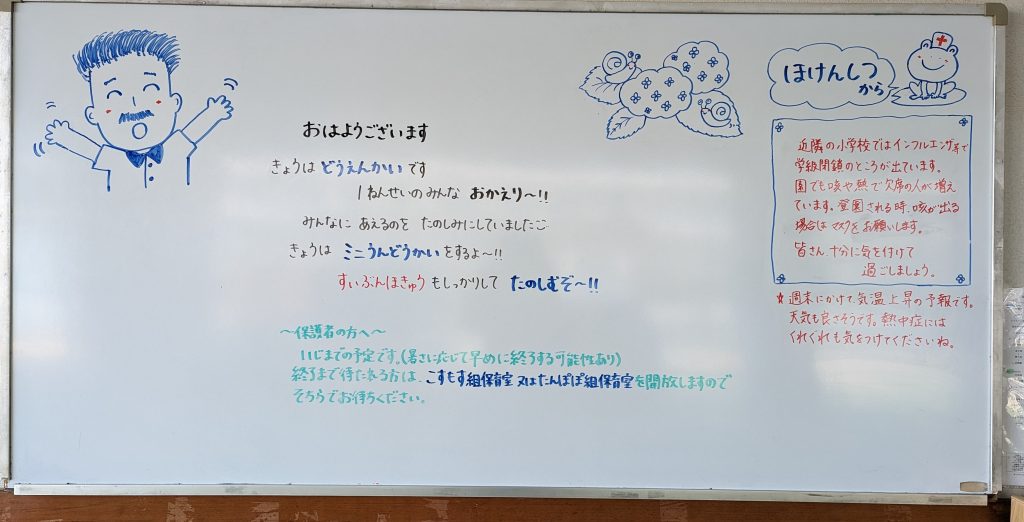 おはようございます
きょうは どうえんかい です
1ねんせいのみんな おかえり～!!
みんなに あえるのを たのしみにしていました
きょうは ミニうんどうかい をするよ～!!
すいぶんほきゅう もしっかりして たのしむぞ～!!
～保護者の方へ～
までの予定です。(暑さに応じて早めに終了する可能性あり)
終了まで待たれる方は、こすもす組保育室 又はたんぽぽ組保育室を開放しますので
そちらでお待ちください。
ほけんしつ
から
近隣の小学校ではインフルエンザ等で
学級閉鎖のところが出ています。
園でも咳や熱で欠席の人が増え
ています。登園される時、咳が出る
場合はマスクをお願いします。
皆さん、十分に気を付けて
過ごしましょう。
☆週末にかけて、気温上昇の予報です。
天気も良さそうです。熱中症には
くれぐれも気をつけてくださいね。